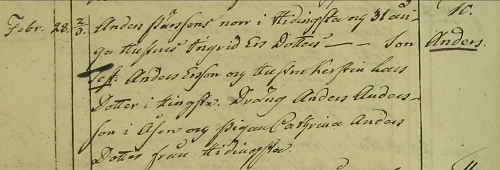 Febr. 28. 2/3. Anders Larssons norr i Hidingsta og 31 åri-
ga Hustrus Ingrid Ers Dotters — — Son Anders.
Test: Anders Ersson og Hustru kerstin Lars
Dotter i Hingsta. Dräng Anders Anders-
son i Åsen og pigan Cathrina Anders
Dotter från Hidingsta.